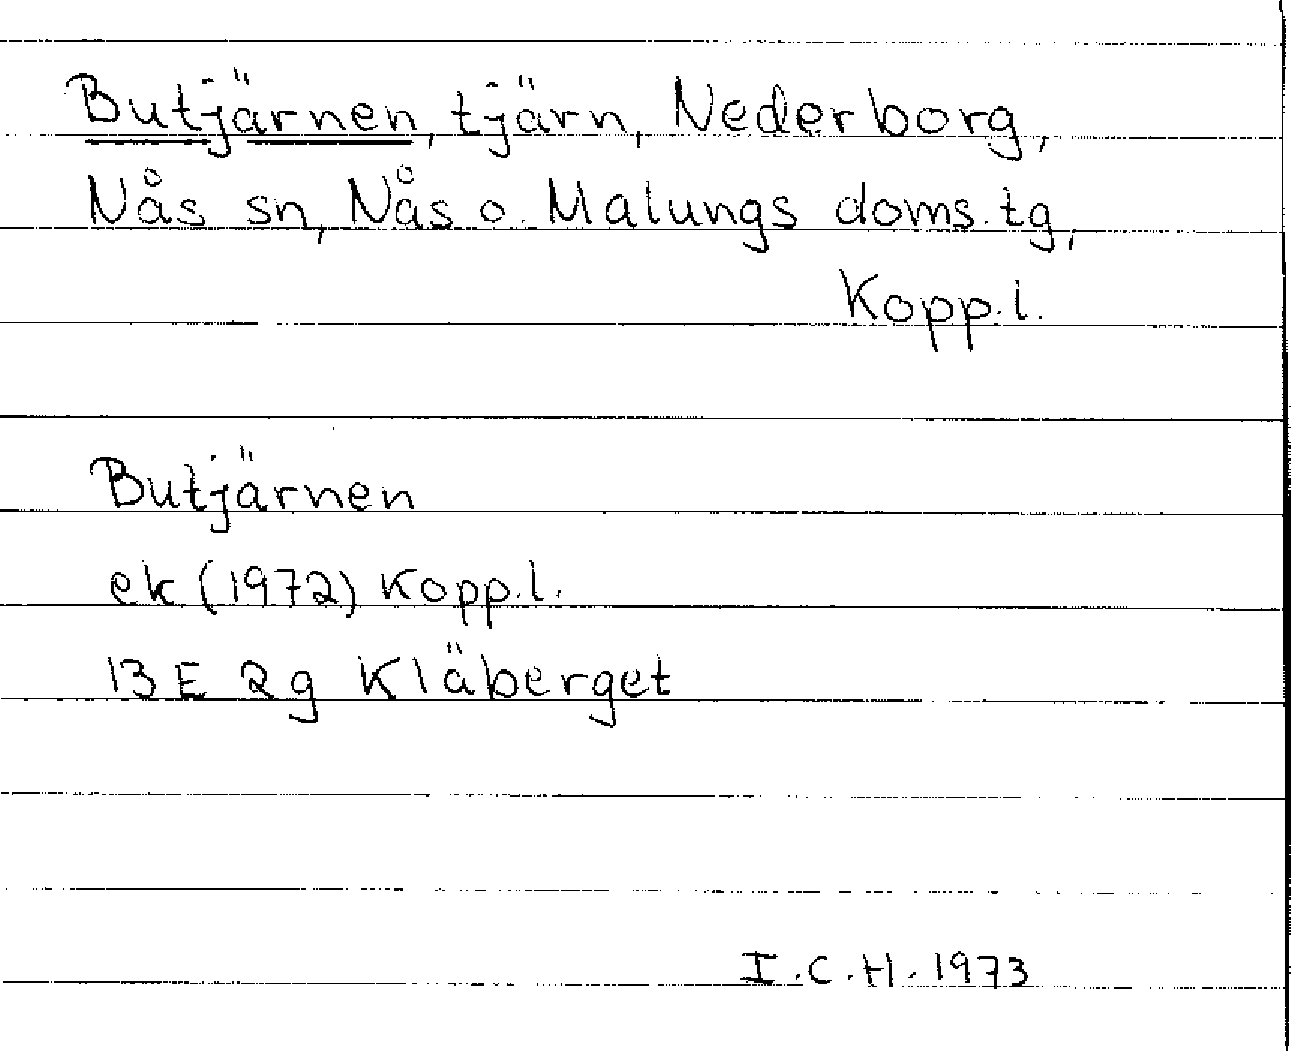 Butjärnen, tjärn, Nederborg,
Nås sn, Nås o. Malungs doms.tg,
Kopp.l.
Butjärnen
ek (1972) Kopp.l.
13 E 2g Kläberget
I.C.H. 1973